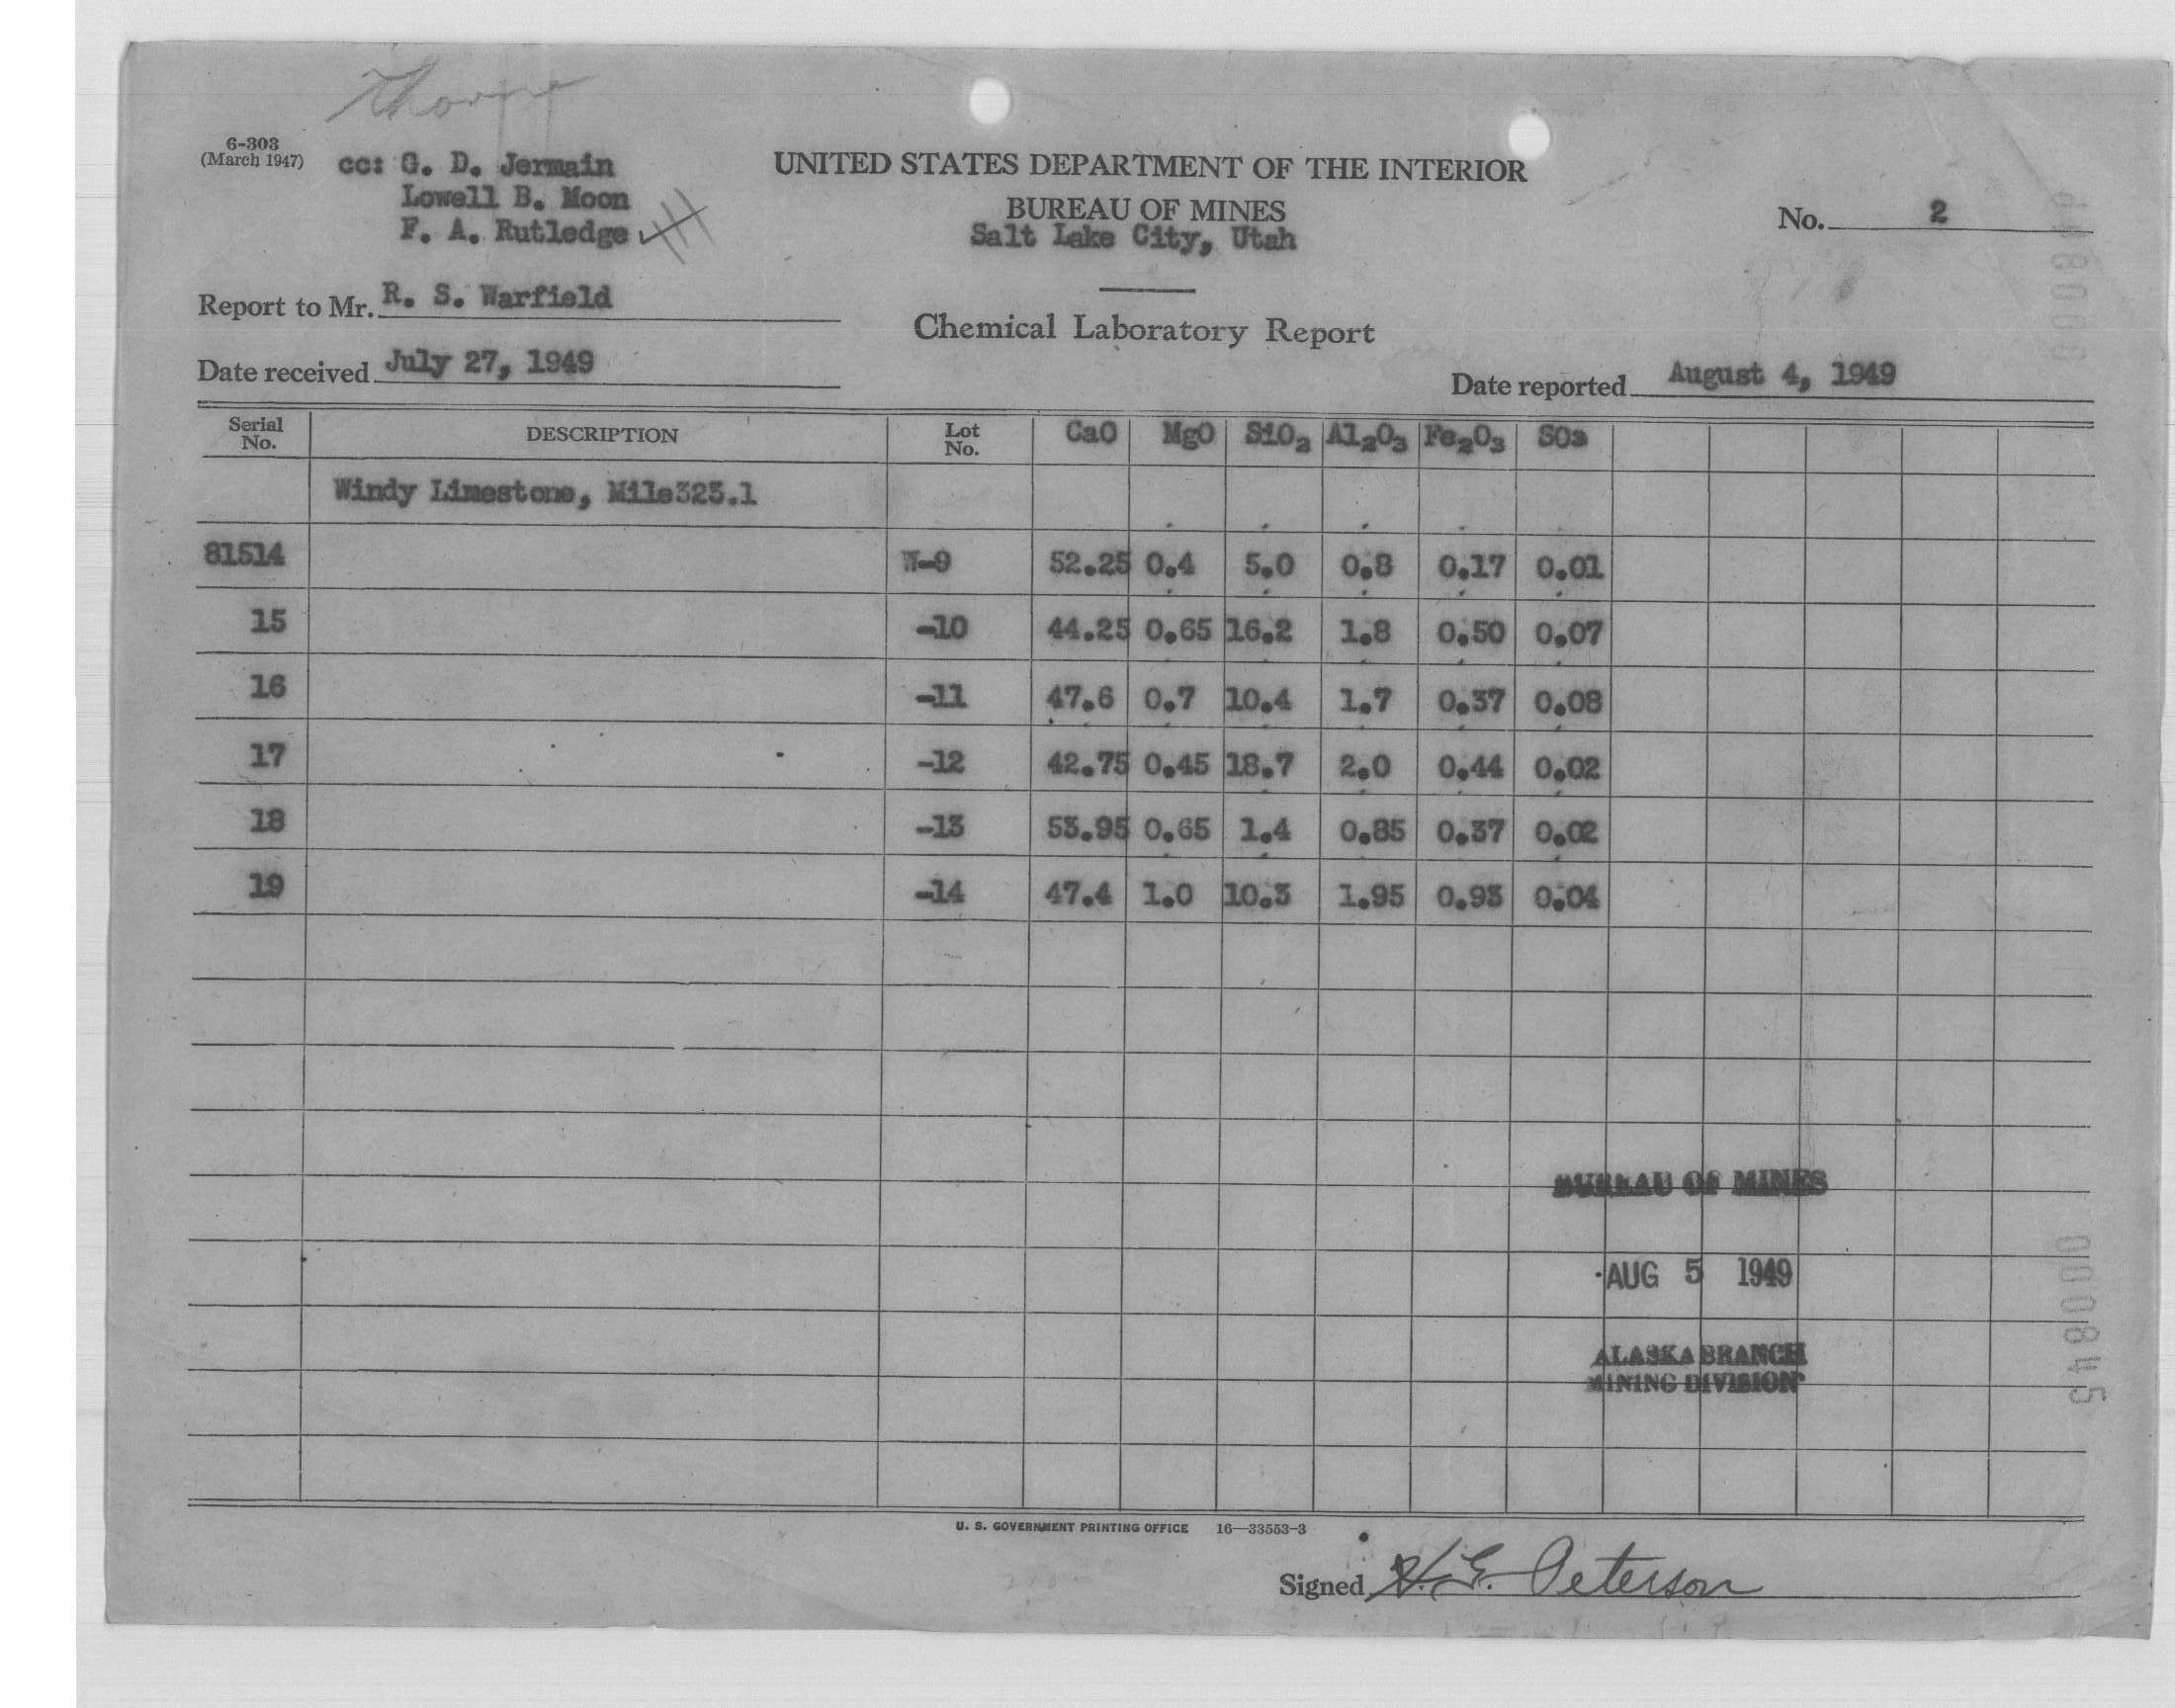 Thorpe
6-303
(March 1947)
cc: G. D. Jermain
Lowell B. Moon
F. A. Rutledge
UNITED STATES DEPARTMENT OF THE INTERIOR
BUREAU OF MINES
Salt Lake City, Utah
No. 2
Report to Mr. R. S. Warfield
Chemical Laboratory Report
Date received July 27, 1949
Date reported August 4, 1949
Serial No. DESCRIPTION Lot No. CaO MgO SiO2 Al2O3 Fe2O3 SO3
Windy Limestone, Mile323.1
81514 W-9 52.25 0.4 5.0 0.8 0.17 0.01
15 -10 44.25 0.65 16.2 1.8 0.50 0.07
16 -11 47.6 0.7 10.4 1.7 0.37 0.08
17 -12 42.75 0.45 18.7 2.0 0.44 0.02
18 -13 53.95 0.65 1.4 0.85 0.37 0.02
19 -14 47.4 1.0 10.3 1.95 0.93 0.04
BUREAU OF MINES
AUG 5 1949
ALASKA BRANCH
MINING DIVISION
000845
U. S. GOVERNMENT PRINTING OFFICE 16—33553-3
Signed H. E. Peterson